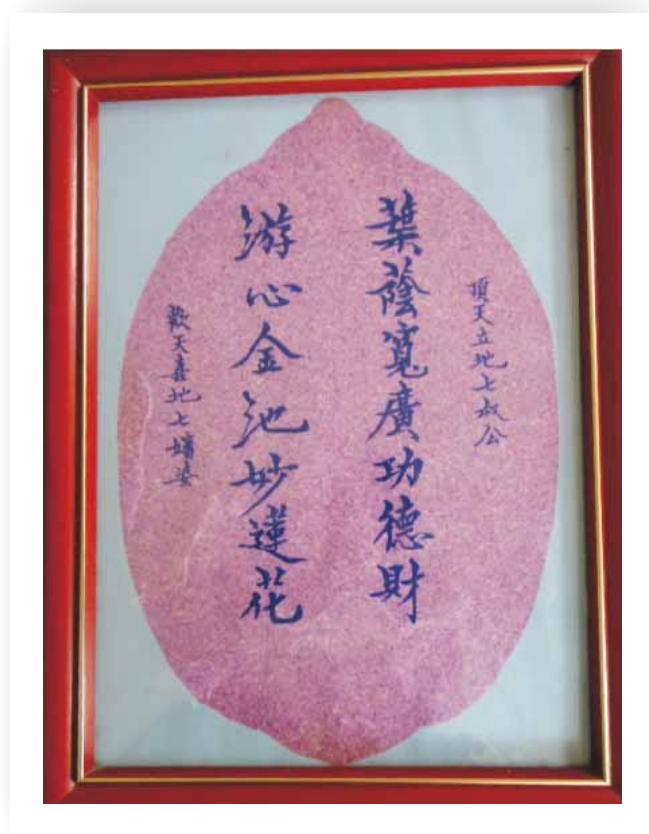 頂天立地七叔公
葉蔭寬廣功德財
游心金池妙蓮花
歡天喜地七嬸婆